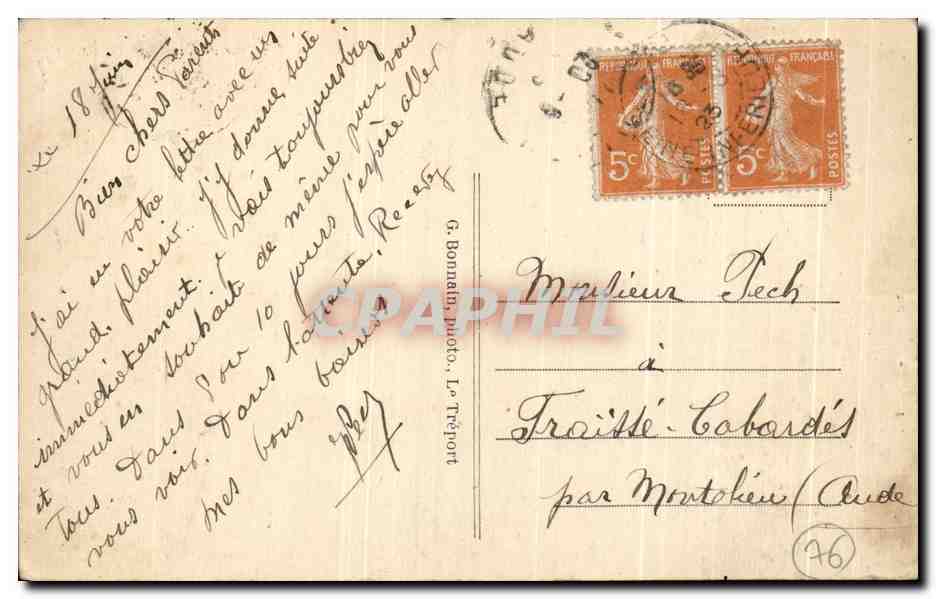 18 Juin
Bien chers Parents
J'ai eu votre lettre avec un
grand plaisir. J'y donne suite
immédiatement. Je vais toujours bien
et vous en souhaite de même pour vous
Tous. Dans 8 ou 10 jours j'espère aller
vous voir. Dans l'attente, Recevez
mes bons baisers
G. Bonnain, photo., Le Tréport
REPUBLIQUE FRANÇAISE
5c
POSTES
REPUBLIQUE FRANÇAISE
5c
POSTES
Monsieur Pech
à
Fraïssé-Cabardés
par Montolieu (Aude
76
CPAPHIL